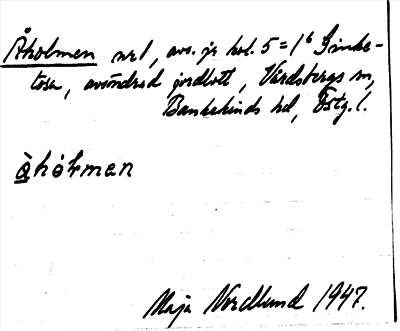 Åholmen nr 1, avs. jr kol. 5 = 1⁶ Linke-
tosa, avsöndrad jordlott, Vårdsbergs sn,
Bankekinds hd, Östg. l.
åhòlmen
Maja Nordlund 1947.